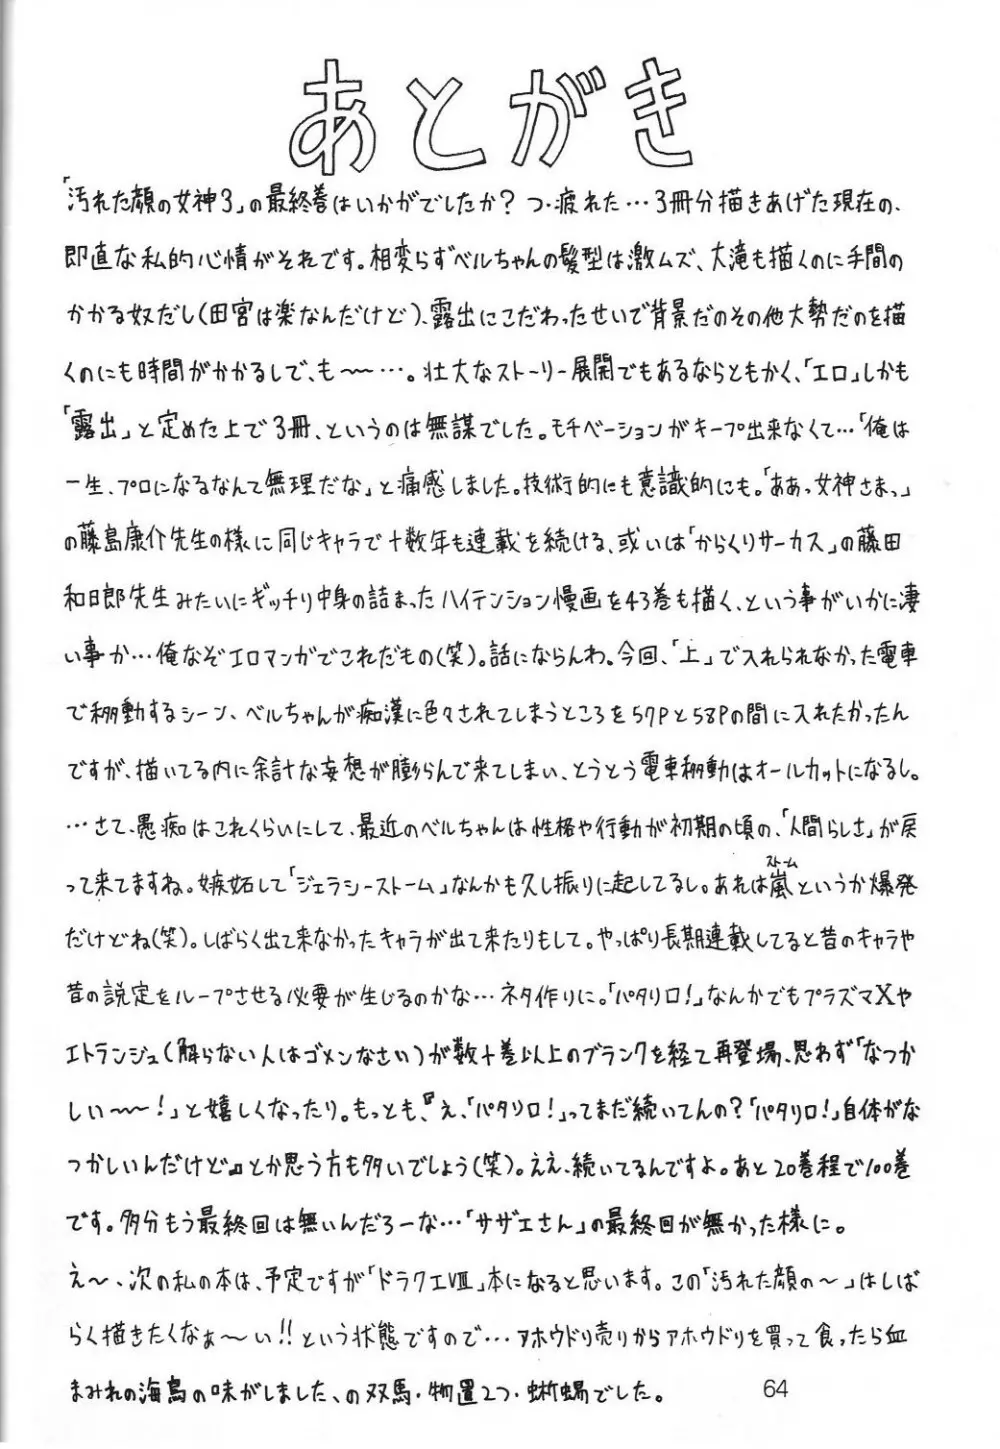 あとがき
「汚れた顔の女神3」の最終巻はいかがでしたか？つ・疲れた…3冊分描きあげた現在の、
即直な私的心情がそれです。相変らずベルちゃんの髪型は激ムズ、大滝も描くのに手間の
かかる奴だし(田宮は楽なんだけど)、露出にこだわったせいで背景だのその他大勢だのを描
くのにも時間がかかるしで、も〜〜…。壮大なストーリー展開でもあるならともかく、「エロ」しかも
「露出」と定めた上で3冊、というのは無謀でした。モチベーションがキープ出来なくて…「俺は
一生、プロになるなんて無理だな」と痛感しました。技術的にも意識的にも。「ああっ女神さまっ」
の藤島康介先生の様に同じキャラで十数年も連載を続ける、或いは「からくりサーカス」の藤田
和日郎先生みたいにギッチリ中身の詰まったハイテンション慢画を43巻も描く、という事がいかに凄
い事か…俺なぞエロマンガでこれだもの(笑)。話にならんわ。今回、「上」で入れられなかった電車
で移動するシーン、ベルちゃんが痴漢に色々されてしまうところを57Pと58Pの間に入れたかったん
ですが、描いてる内に余計な妄想が膨らんで来てしまい、とうとう電車移動はオールカットになるし。
…さて、愚痴はこれくらいにして、最近のベルちゃんは性格や行動が初期の頃の、「人間らしさ」が戻
って来てますね。嫉妬して「ジェラシーストーム」なんかも久し振りに起してるし。あれは嵐(ストーム)というか爆発
だけどね(笑)。しばらく出て来なかったキャラが出て来たりもして。やっぱり長期連載してると昔のキャラや
昔の説定をループさせる必要が生じるのかな…ネタ作りに。「パタリロ!」なんかでもプラズマXや
エトランジュ(解らない人はゴメンなさい)が数十巻以上のブランクを経て再登場、思わず「なつか
しい〜〜!」と嬉しくなったり。もっとも、『え、「パタリロ!」ってまだ続いてんの？「パタリロ!」自体がな
つかしいんだけど』とか思う方も多いでしょう(笑)。ええ、続いてるんですよ。あと20巻程で100巻
です。多分もう最終回は無いんだろーな…「サザエさん」の最終回が無かった様に。
え〜、次の私の本は、予定ですが「ドラクエⅧ」本になると思います。この「汚れた顔の〜」はしば
らく描きたくなぁ〜い!!という状態ですので…アホウドリ売りからアホウドリを買って食ったら血
まみれの海鳥の味がしました、の双馬・物置2つ・蜥蜴でした。
64